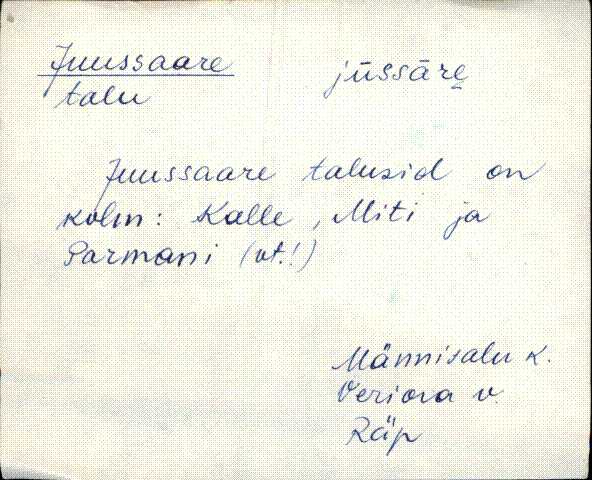 Juussaare jūssāre̮
talu
Juussaare talusid on
kolm: Kalle, Miti ja
Parmani (vt.!)
Männisalu k.
Veriora v.
Räp